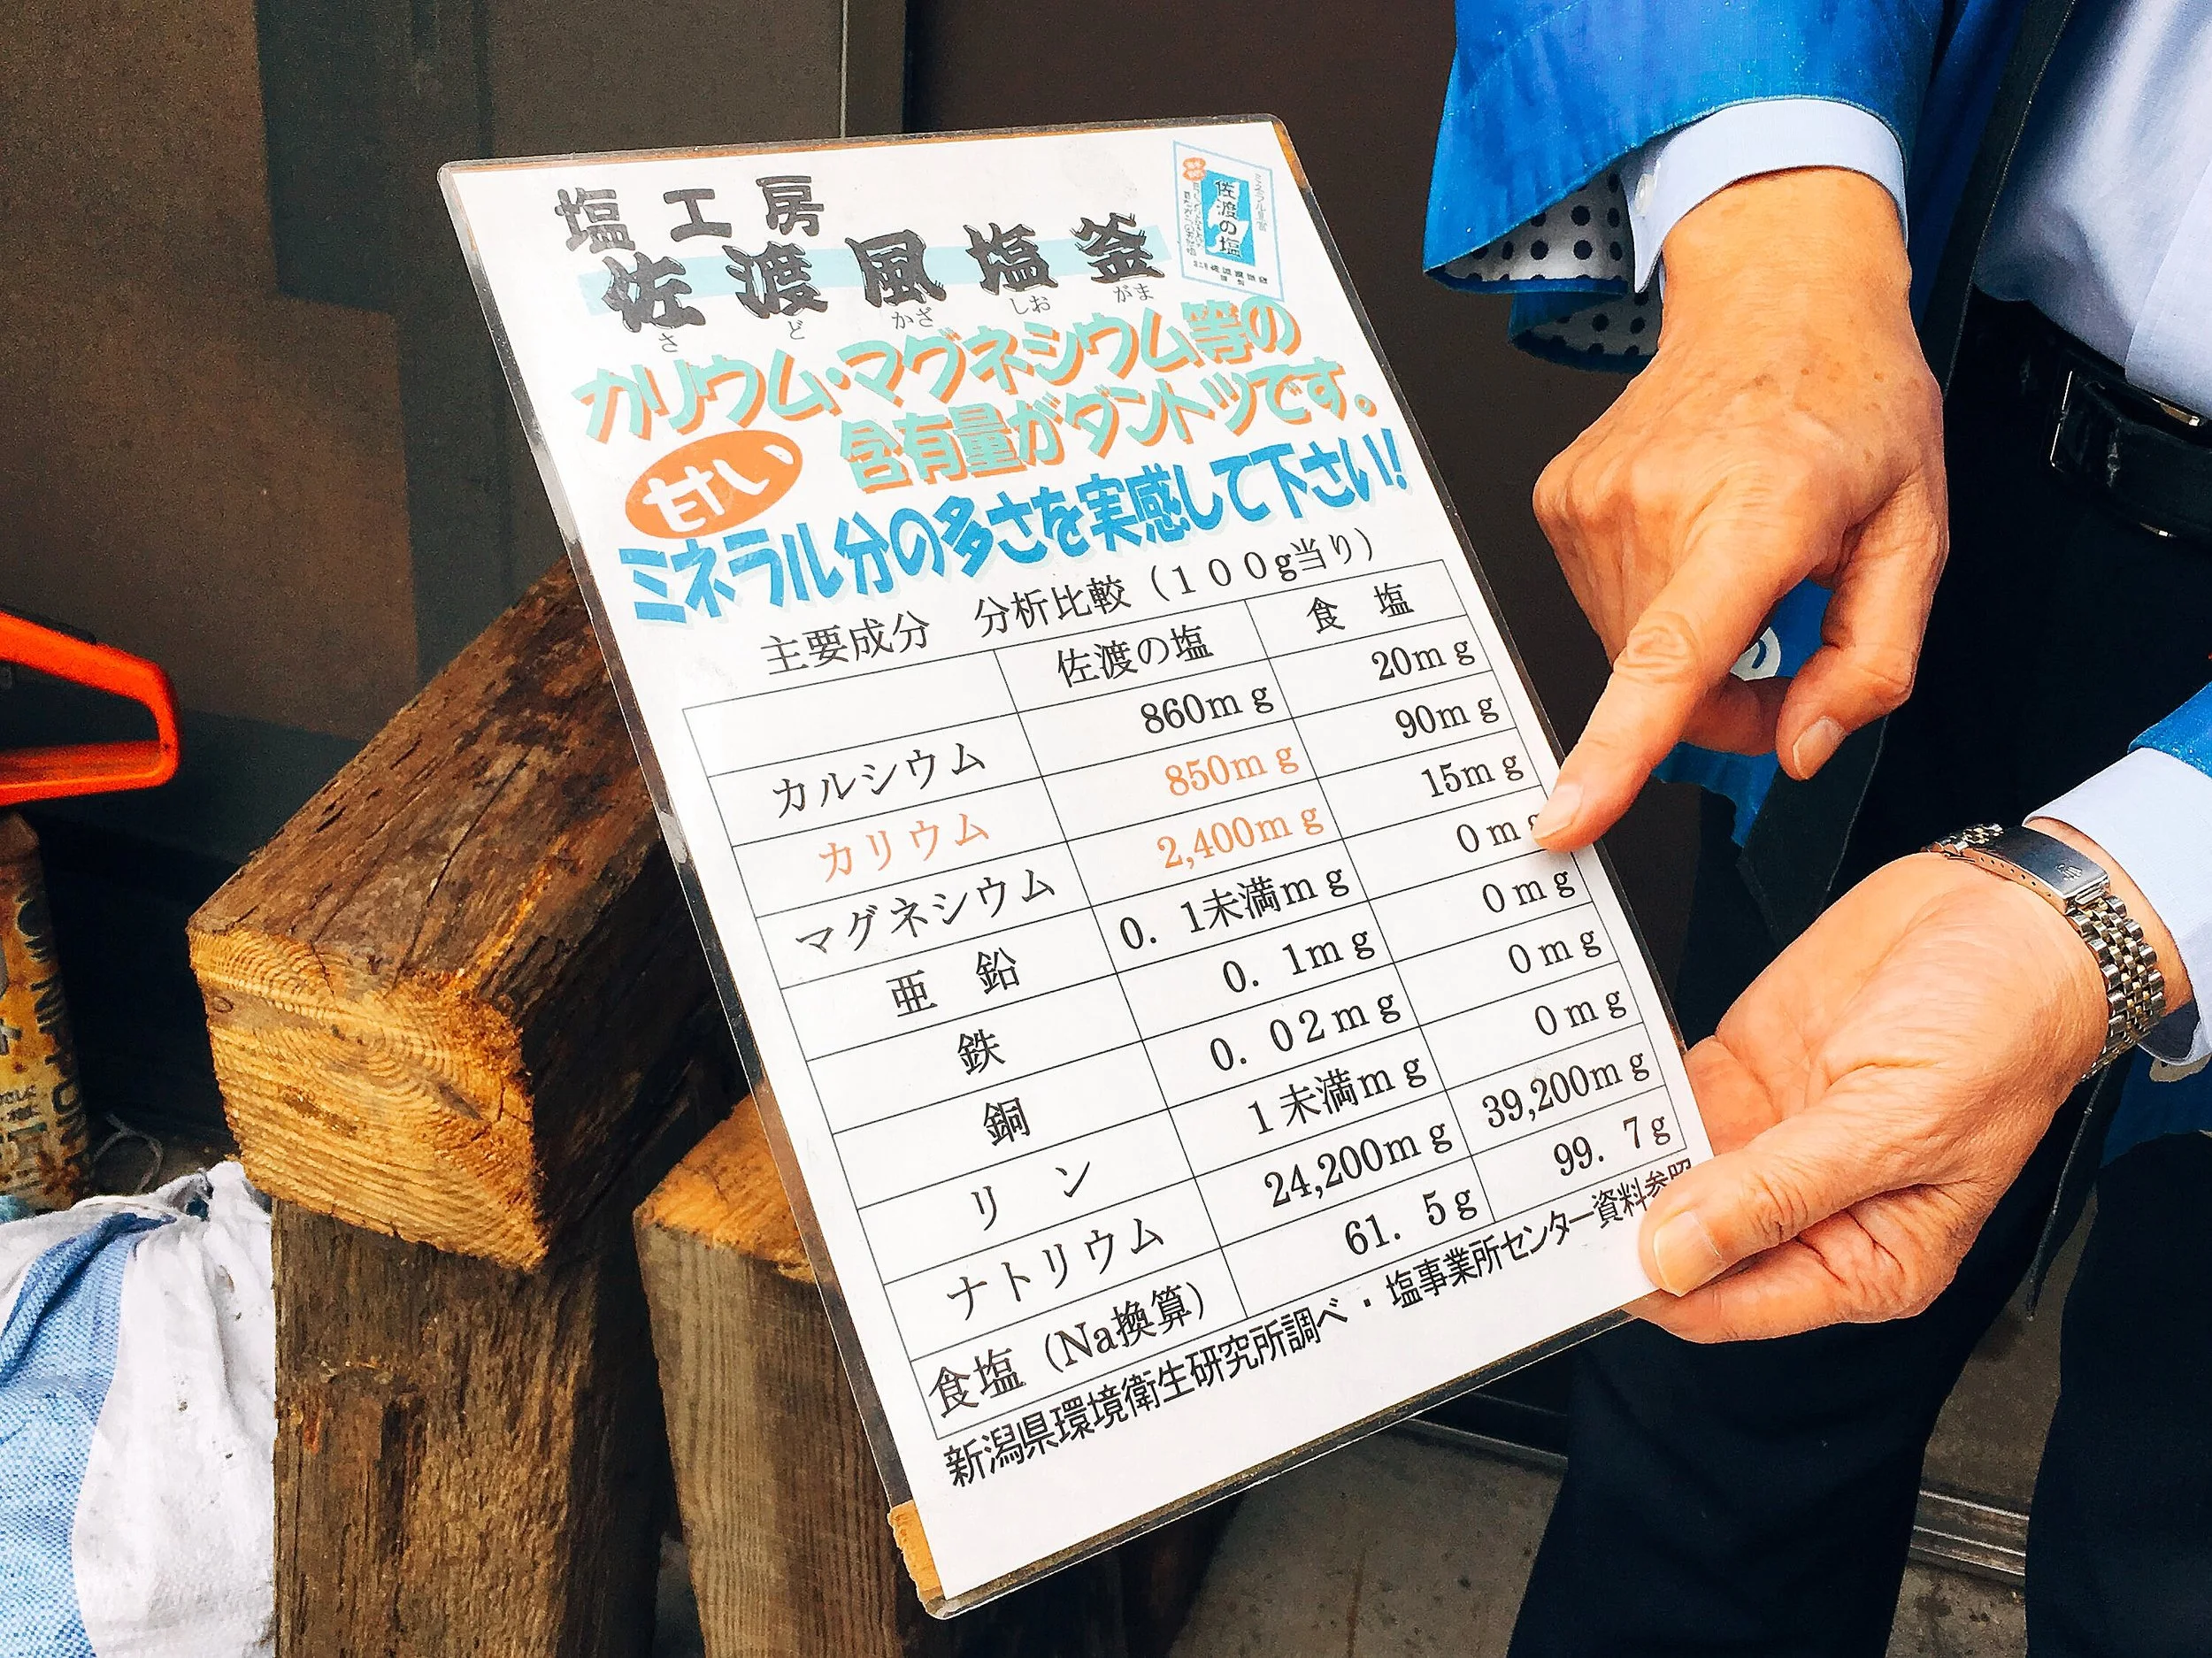 塩工房
佐渡風塩釜
さ ど かざ しお がま
佐渡の塩
カリウム・マグネシウム等の
含有量がダントツです。
甘い、
ミネラル分の多さを実感して下さい!
主要成分 分析比較(100g当り)
佐渡の塩 食 塩
カルシウム 860mg 20mg
カリウム 850mg 90mg
マグネシウム 2,400mg 15mg
亜 鉛 0.1未満mg 0m
鉄 0.1mg 0mg
銅 0.02mg 0mg
リ ン 1未満mg 0mg
ナトリウム 24,200mg 39,200mg
食塩(Na換算) 61.5g 99.7g
新潟県環境衛生研究所調べ・塩事業所センター資料参照